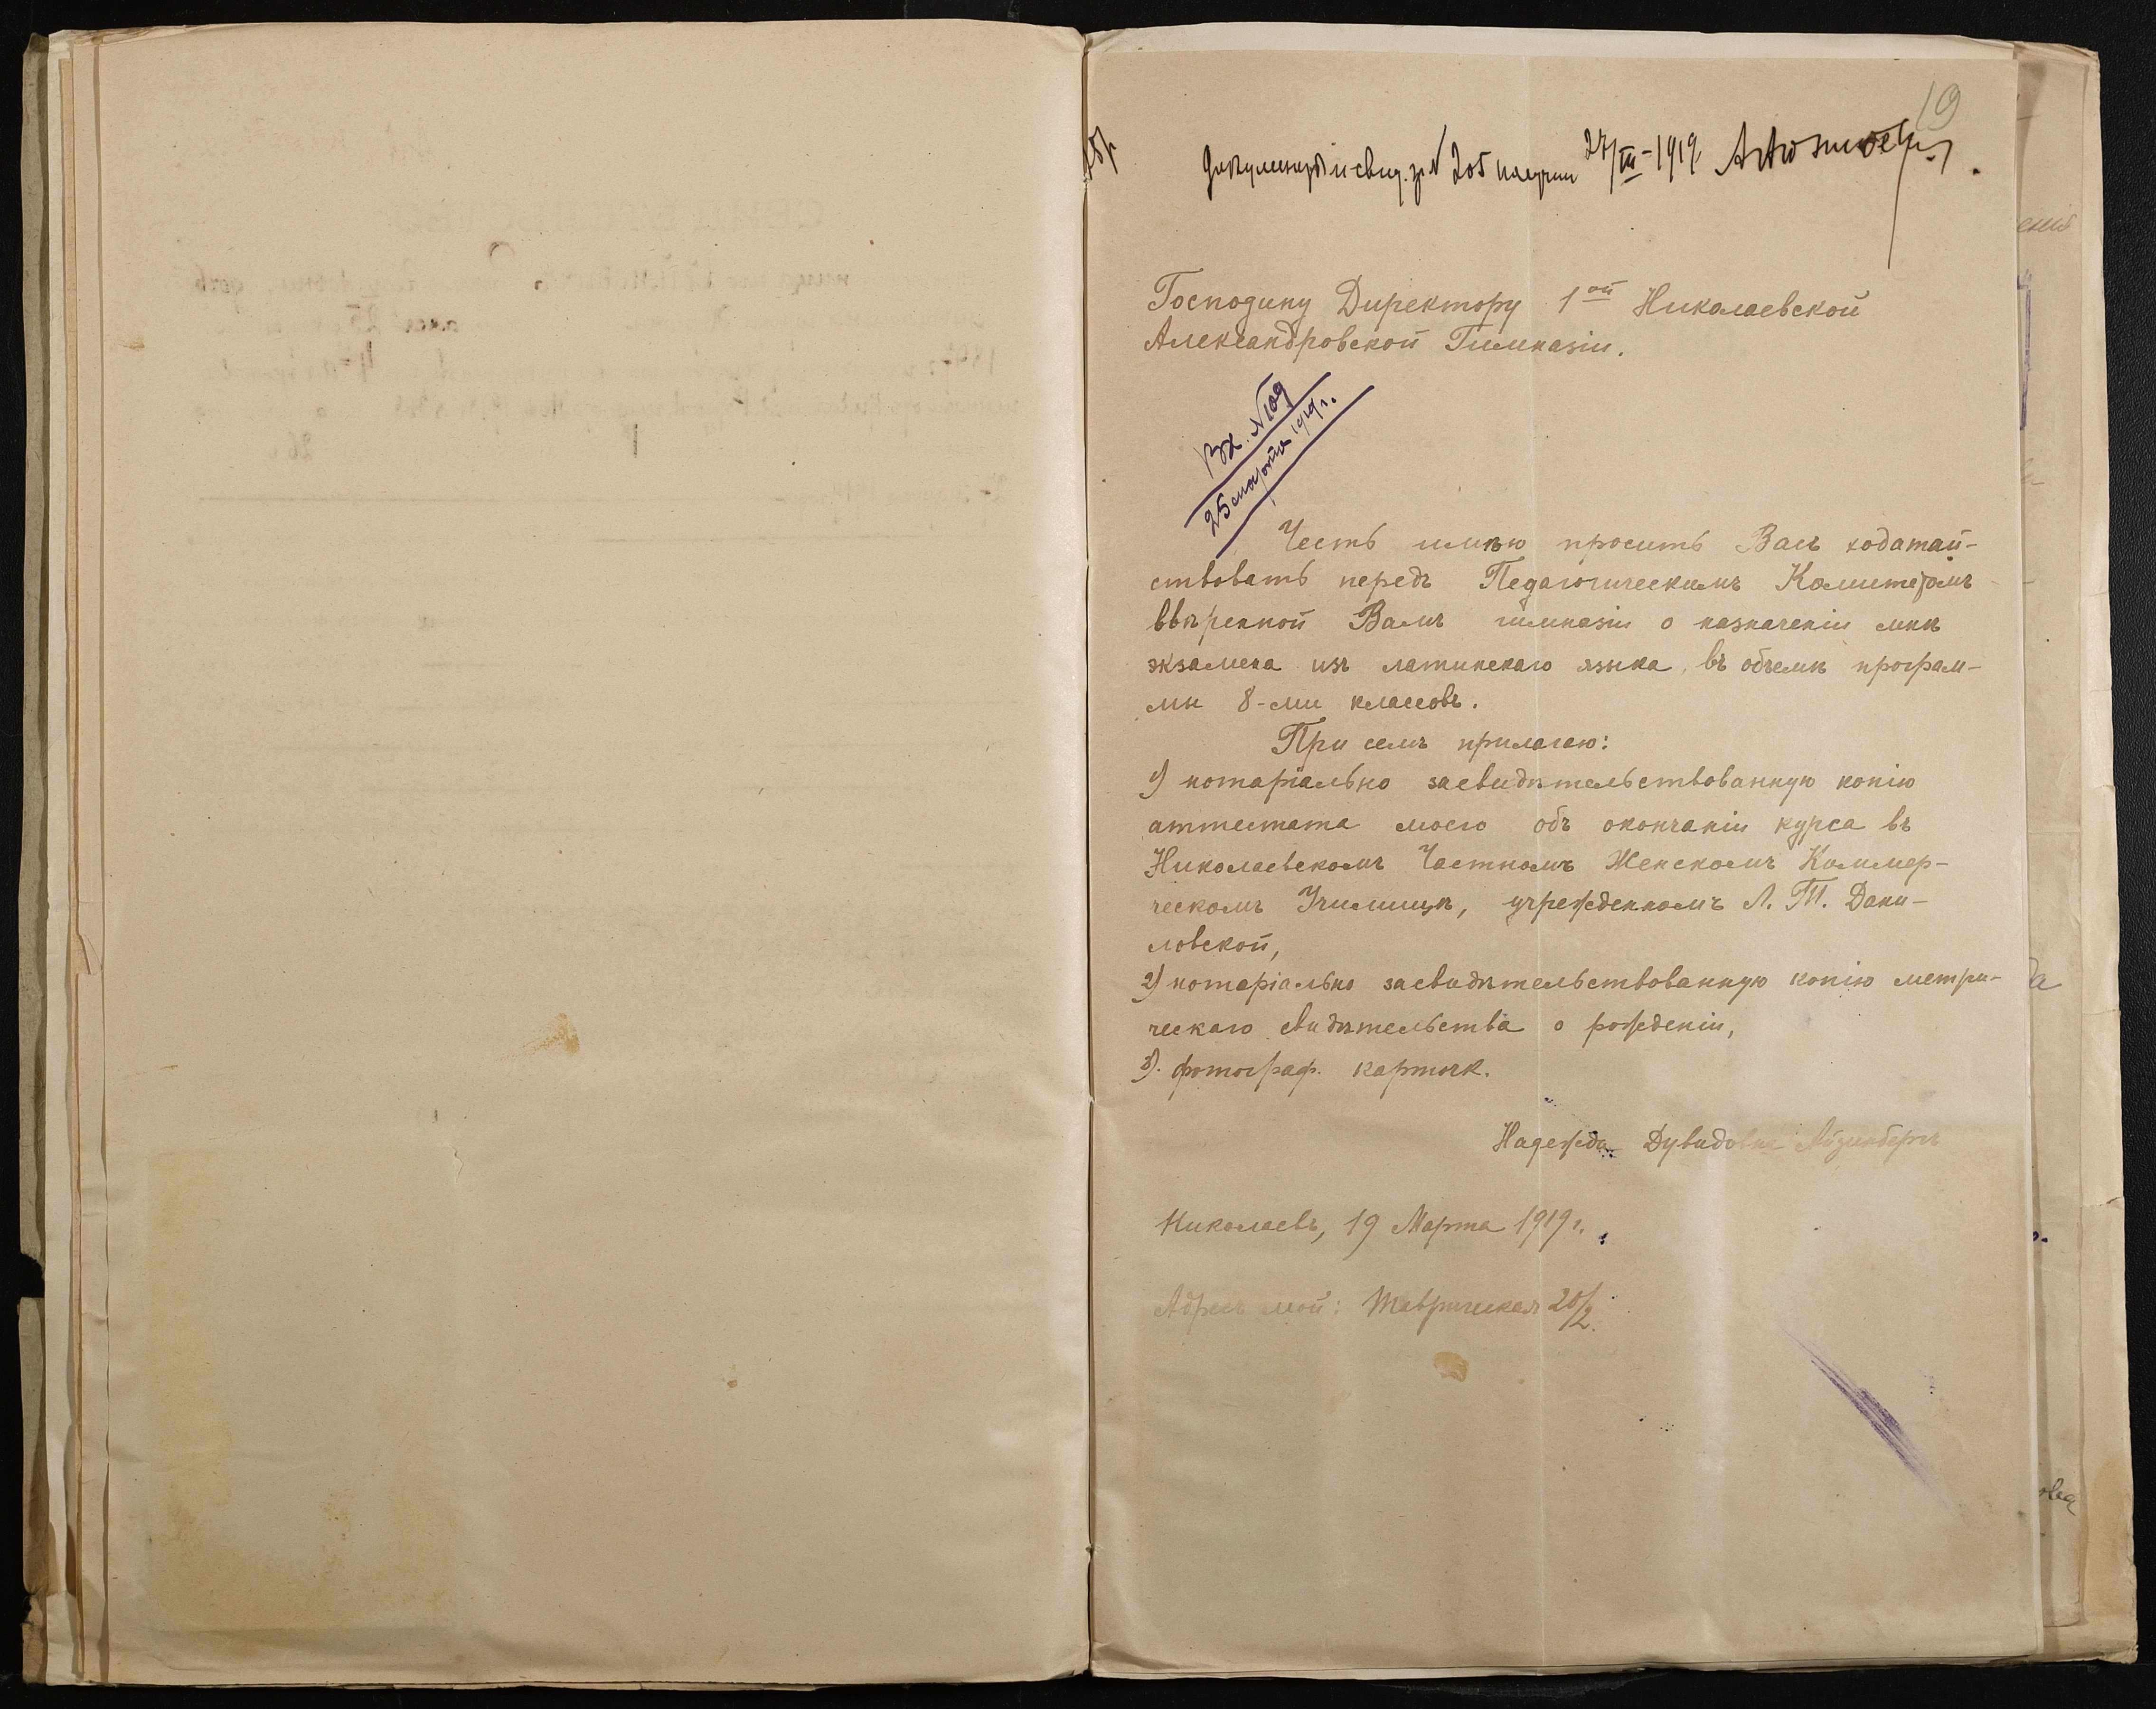 19
Документы и свид. за № 205 получил 27/III-1919.
Господину Директору 1ой Николаевской
Александровской Гимназіи.
Вх. №109
25 марта 1919 г.
Честь имѣю просить Васъ ходатай-
ствовать передъ Педагогическимъ Комитетомъ
ввѣренной Вамъ гимназіи о назначеніи мнѣ
экзамена изъ латинскаго языка, въ объемѣ програм-
мы 8-ми классовъ.
При семъ прилагаю:
1) нотаріально засвидѣтельствованную копію
аттестата моего объ окончаніи курса въ
Николаевскомъ Частномъ Женскомъ Коммер-
ческомъ Училищѣ, учрежденномъ Л. Т. Дани-
ловской,
2) нотаріально засвидѣтельствованную копію метри-
ческаго свидѣтельства о рожденіи,
3). фотограф. карточк.
Надежда Дувидовна Айзинбергъ
Николаевъ, 19 Марта 1919 г.
Адресъ мой: Таврическая 20/2.